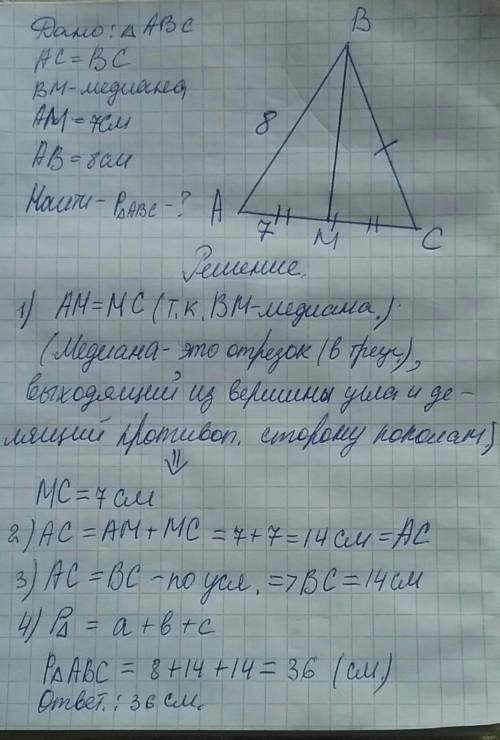 Дано: △ABC
AC = BC
BM - медиана
AM = 7см
AB = 8см
Найти - P△ABC - ?
B
8
A
7
M
C
Решение.
1) AM = MC (т.к. BM-медиана.)
(Медиана - это отрезок (в треуг.),
выходящий из вершины угла и де-
лящий противоп. сторону пополам)
⇓
MC = 7 см
2) AC = AM + MC = 7 + 7 = 14 см = AC
3) AC = BC - по усл. => BC = 14 см
4) P△ = a + b + c
P△ABC = 8 + 14 + 14 = 36 (см)
Ответ.: 36 см.